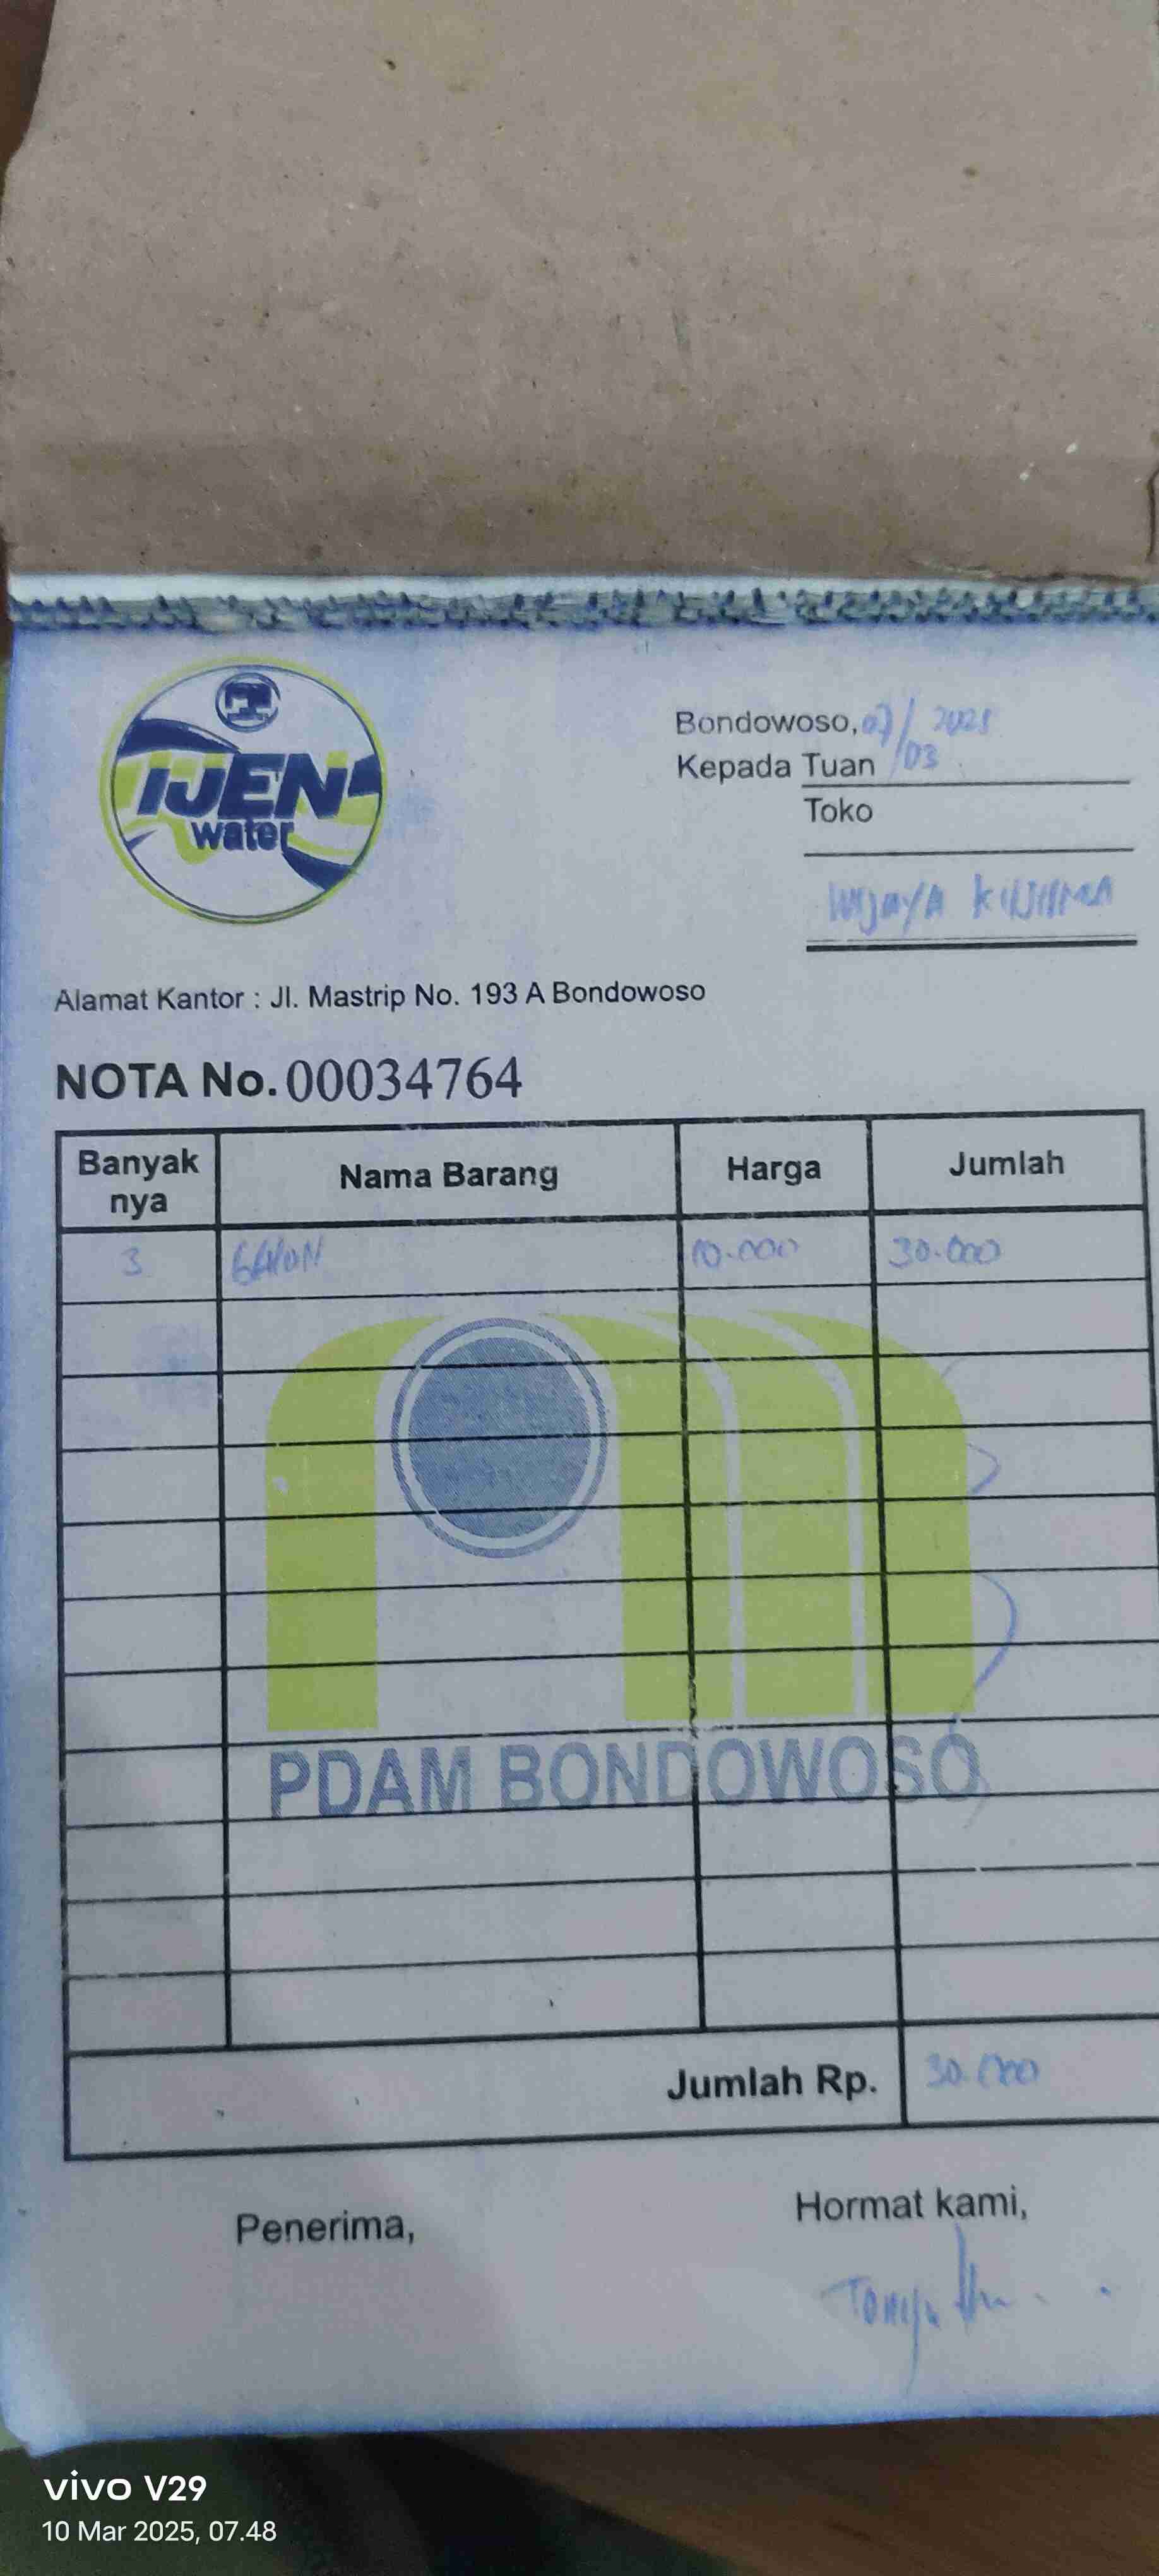 IJEN
water
Bondowoso, 07/03 2025
Kepada Tuan
Toko
WIJAYA KUSUMA
Alamat Kantor : Jl. Mastrip No. 193 A Bondowoso
NOTA No. 00034764
Banyak nya Nama Barang Harga Jumlah
3 GALON 10.000 30.000
PDAM BONDOWOSO
Jumlah Rp. 30.000
Penerima, Hormat kami,
vivo V29
10 Mar 2025, 07.48